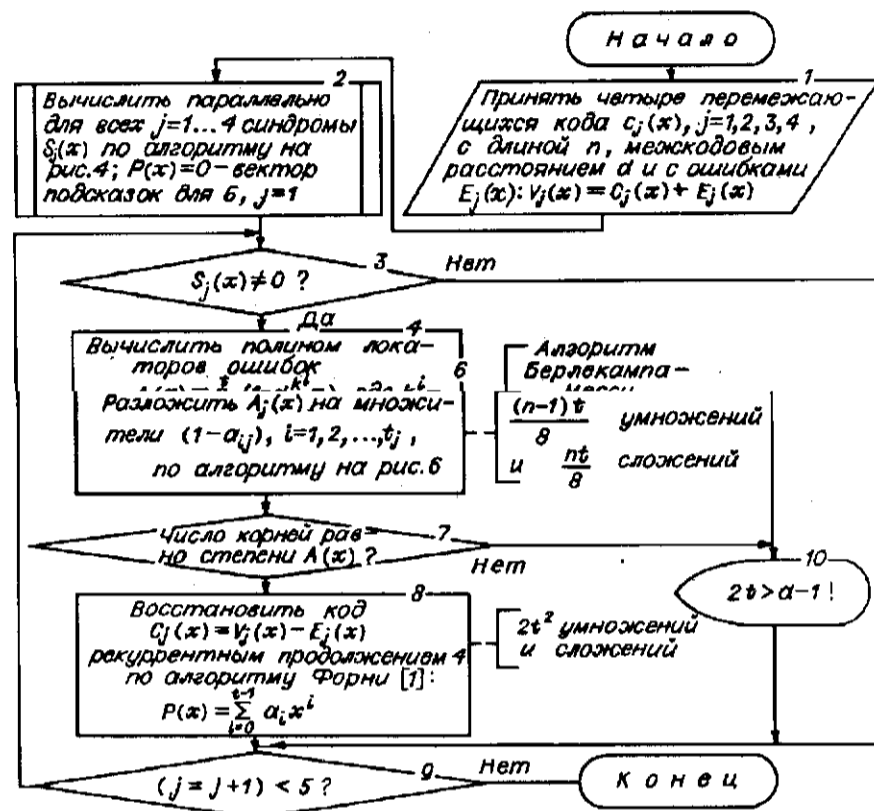 Начало
1
Принять четыре перемежаю-
щихся кода c_j(x), j=1,2,3,4,
с длиной n, межкодовым
расстоянием d и с ошибками
E_j(x): V_j(x) = C_j(x) + E_j(x)
2
Вычислить параллельно
для всех j=1...4 синдромы
S_j(x) по алгоритму на
рис.4; P(x)=0 – вектор
подсказок для 6, j=1
3
S_j(x)≠0 ?
Нет
Да
4
Вычислить полином лока-
торов ошибок
Алгоритм
Берлекампа-
6
Разложить Λ_j(x) на множи-
тели (1-α_ij), i=1,2,...,t_j,
по алгоритму на рис.6
(n-1)t/8 умножений
и nt/8 сложений
7
Число корней рав-
но степени Λ(x) ?
Нет
8
Восстановить код
C_j(x)=V_j(x)-E_j(x)
рекуррентным продолжением 4
по алгоритму Форни [1]:
P(x)=∑_{i=0}^{t-1} α_i x^i
2t² умножений
и сложений
10
2t>d-1 !
9
(j=j+1) < 5 ?
Нет
Конец